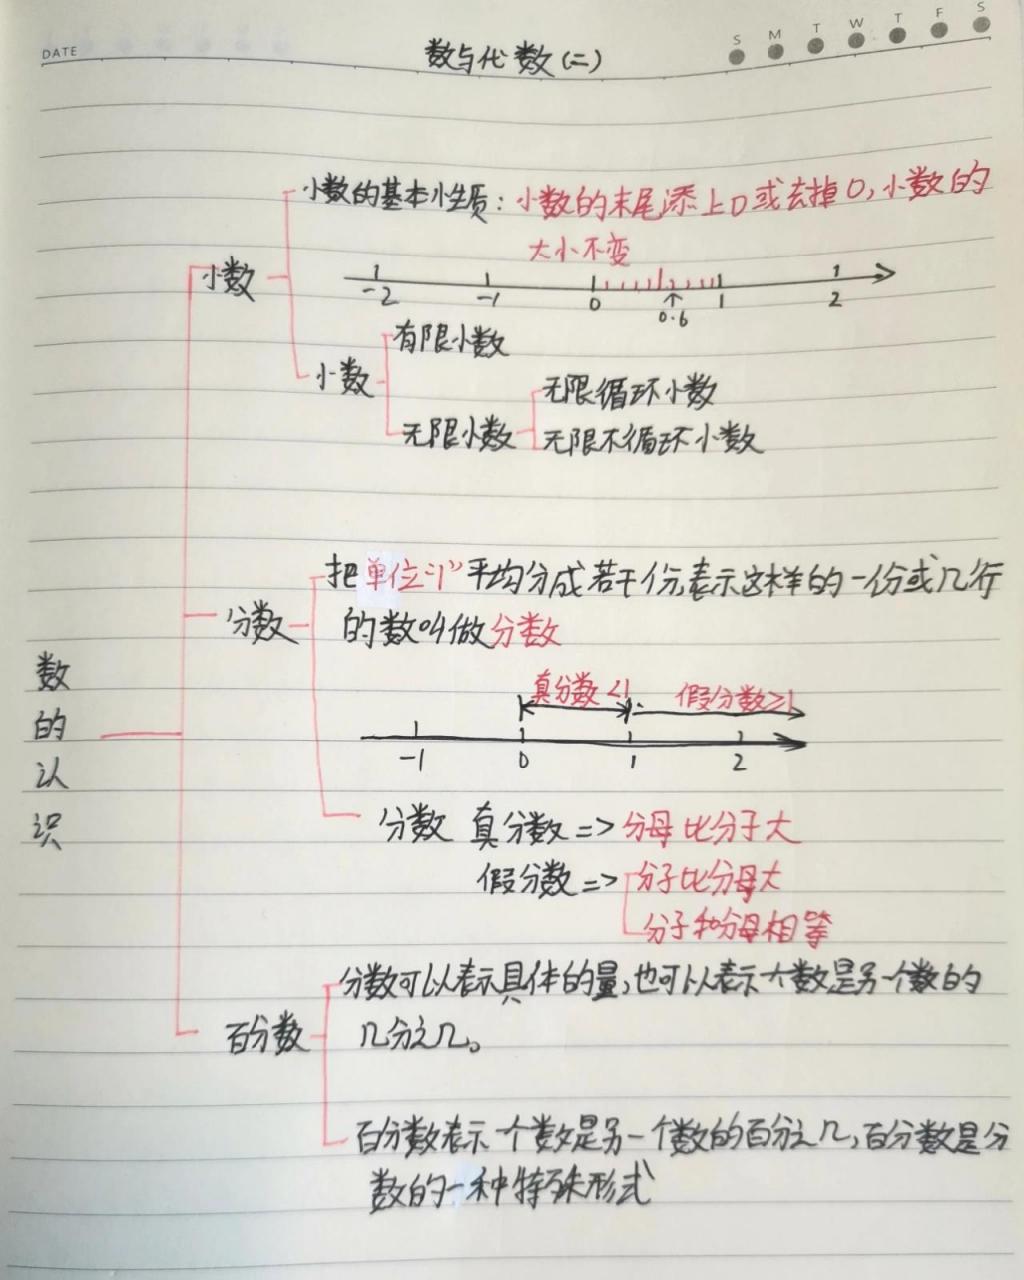 DATE
S M T W T F S
数与代数(二)
小数的基本性质：小数的末尾添上0或去掉0，小数的
大小不变
小数
-2 -1 0 1 2
0.6
有限小数
小数
无限循环小数
无限小数
无限不循环小数
把单位“1”平均分成若干份，表示这样的一份或几行
分数
的数叫做分数
真分数<1 假分数≥1
-1 0 1 2
数
的
认
识
分数 真分数=>分母比分子大
假分数=>分子比分母大
分子和分母相等
分数可以表示具体的量，也可以表示一个数是另一个数的
百分数
几分之几。
百分数表示一个数是另一个数的百分之几，百分数是分
数的一种特殊形式